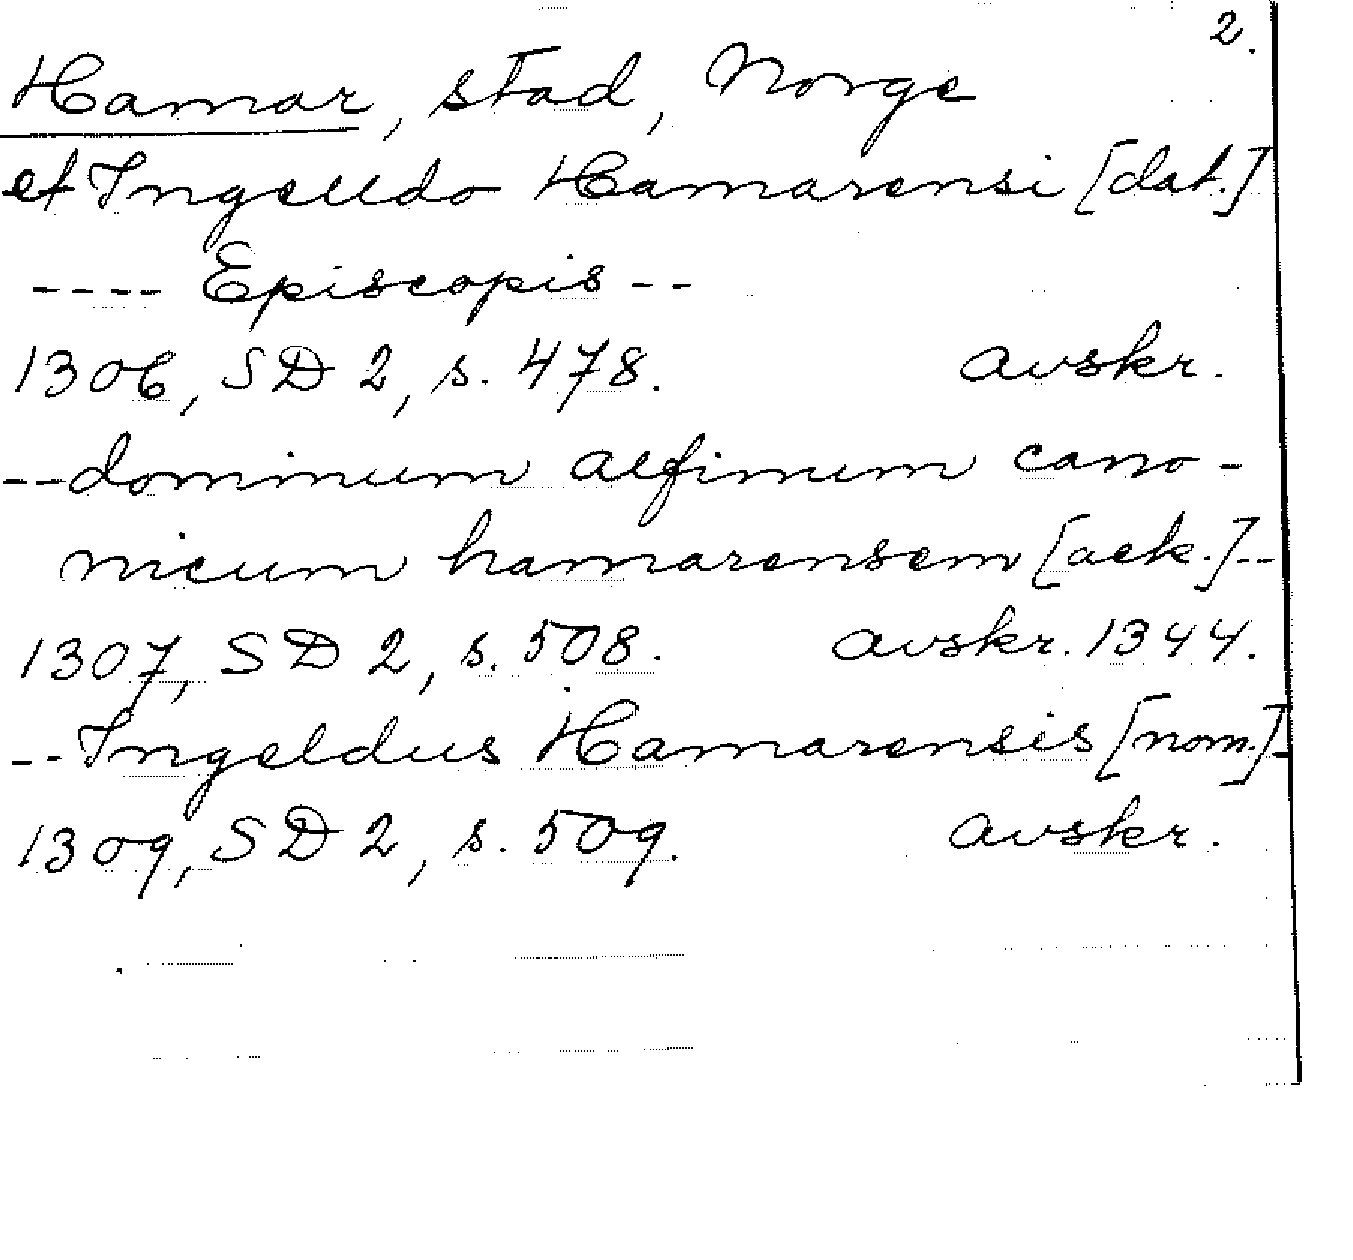 2.
Hamar, stad, Norge
et Ingelldo Hamarensi [dat.]
---- Episcopis --
1306, SD 2, s. 478. avskr.
--dominum alfinum cano-
nicum hamarensem [ack.]--
1307, SD 2, s. 508. avskr. 1344.
--Ingeldus Hamarensis [nom.]-
1309, SD 2, s. 509. avskr.